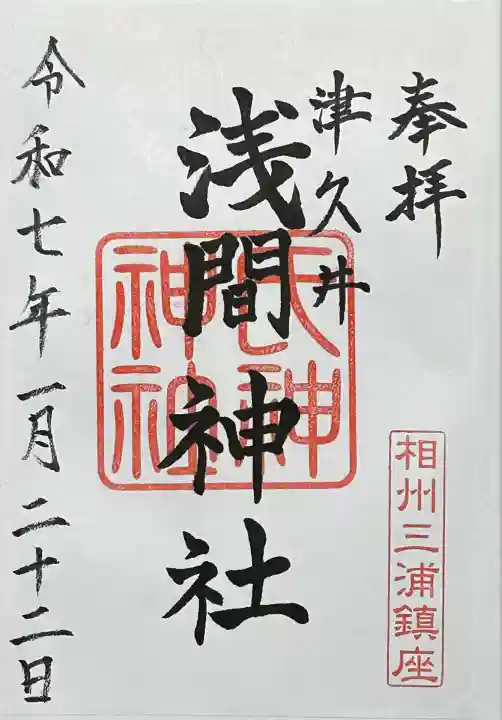 奉拝
相州三浦鎮座
津久井
浅間神社
天神
神社
令和七年一月二十二日